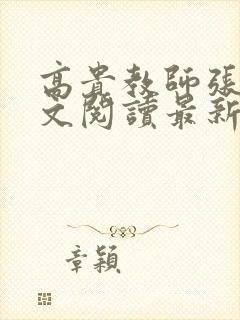 高貴教師張
文閱讀最新
章穎